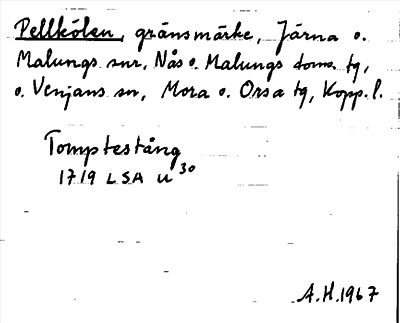 Pellkölen, gränsmärke, Järna o.
Malungs snr, Nås o. Malungs doms. tg,
o. Venjans sn, Mora o. Orsa tg, Kopp. l.
Tomptestång
1719 LSA U 30
A.H. 1967